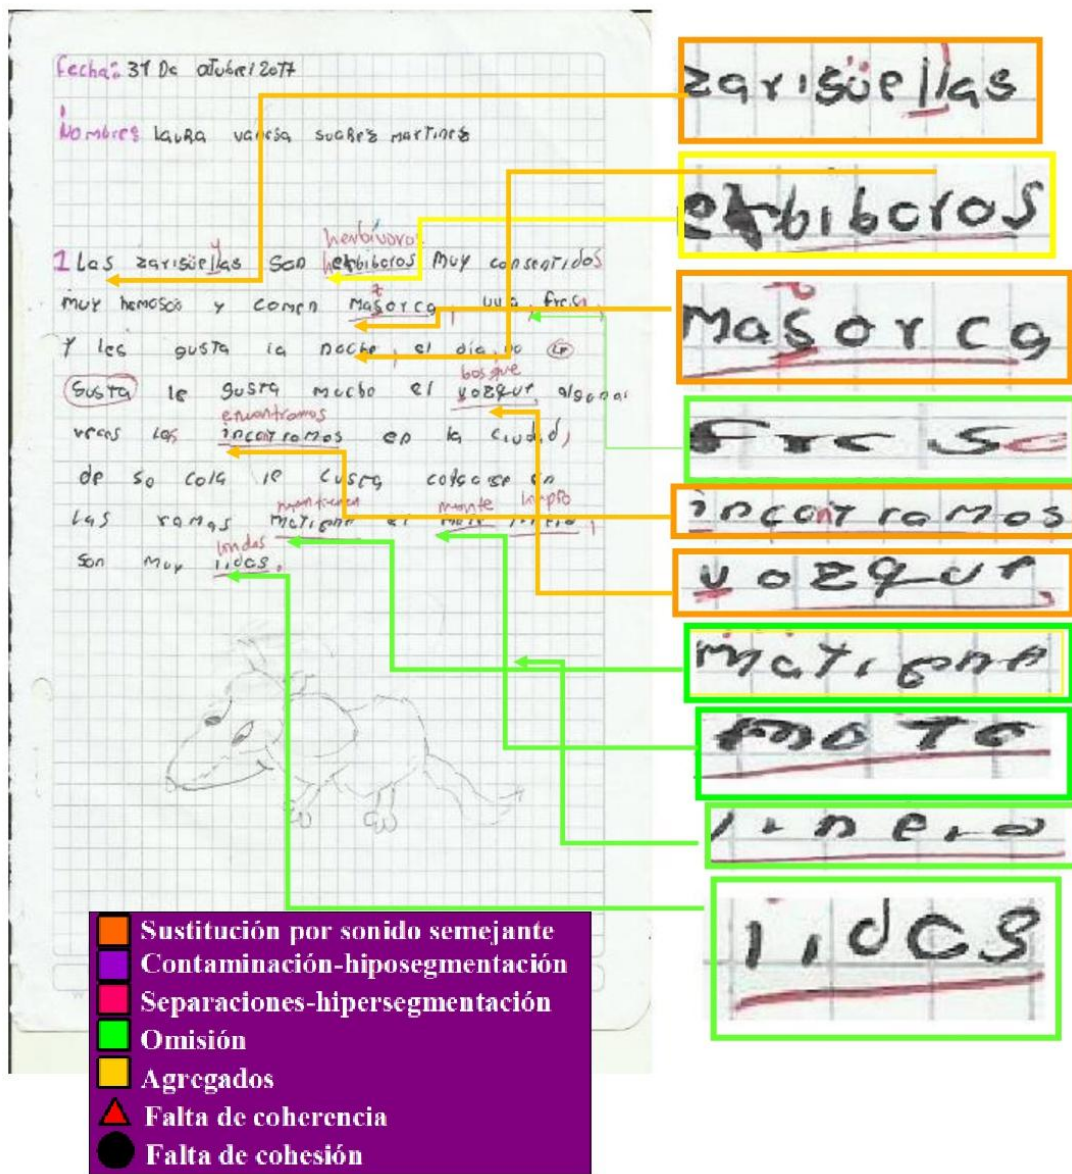 Fecha: 31 De octubre/2017
Nombres Laura vanesa suares martines
herbívoros
1 Las zarisüellas son herbiboros muy consentidos
muy hemosos y comen masorca, uva, fresa,
Y les gusta la noche, el día no le
bosque
gusta le gusta mucho el vozque, algunas
encontramos
veces los incontramos en la ciudad,
de so cola le gusta colgarse en
mantienen monte limpio
las ramas matiene el mote
lindos
son muy lidos,
zarisüellas
erbiboros
masorca
fresa
incontramos
vozque
matiene
mote
lidos
Sustitución por sonido semejante
Contaminación-hiposegmentación
Separaciones-hipersegmentación
Omisión
Agregados
Falta de coherencia
Falta de cohesión